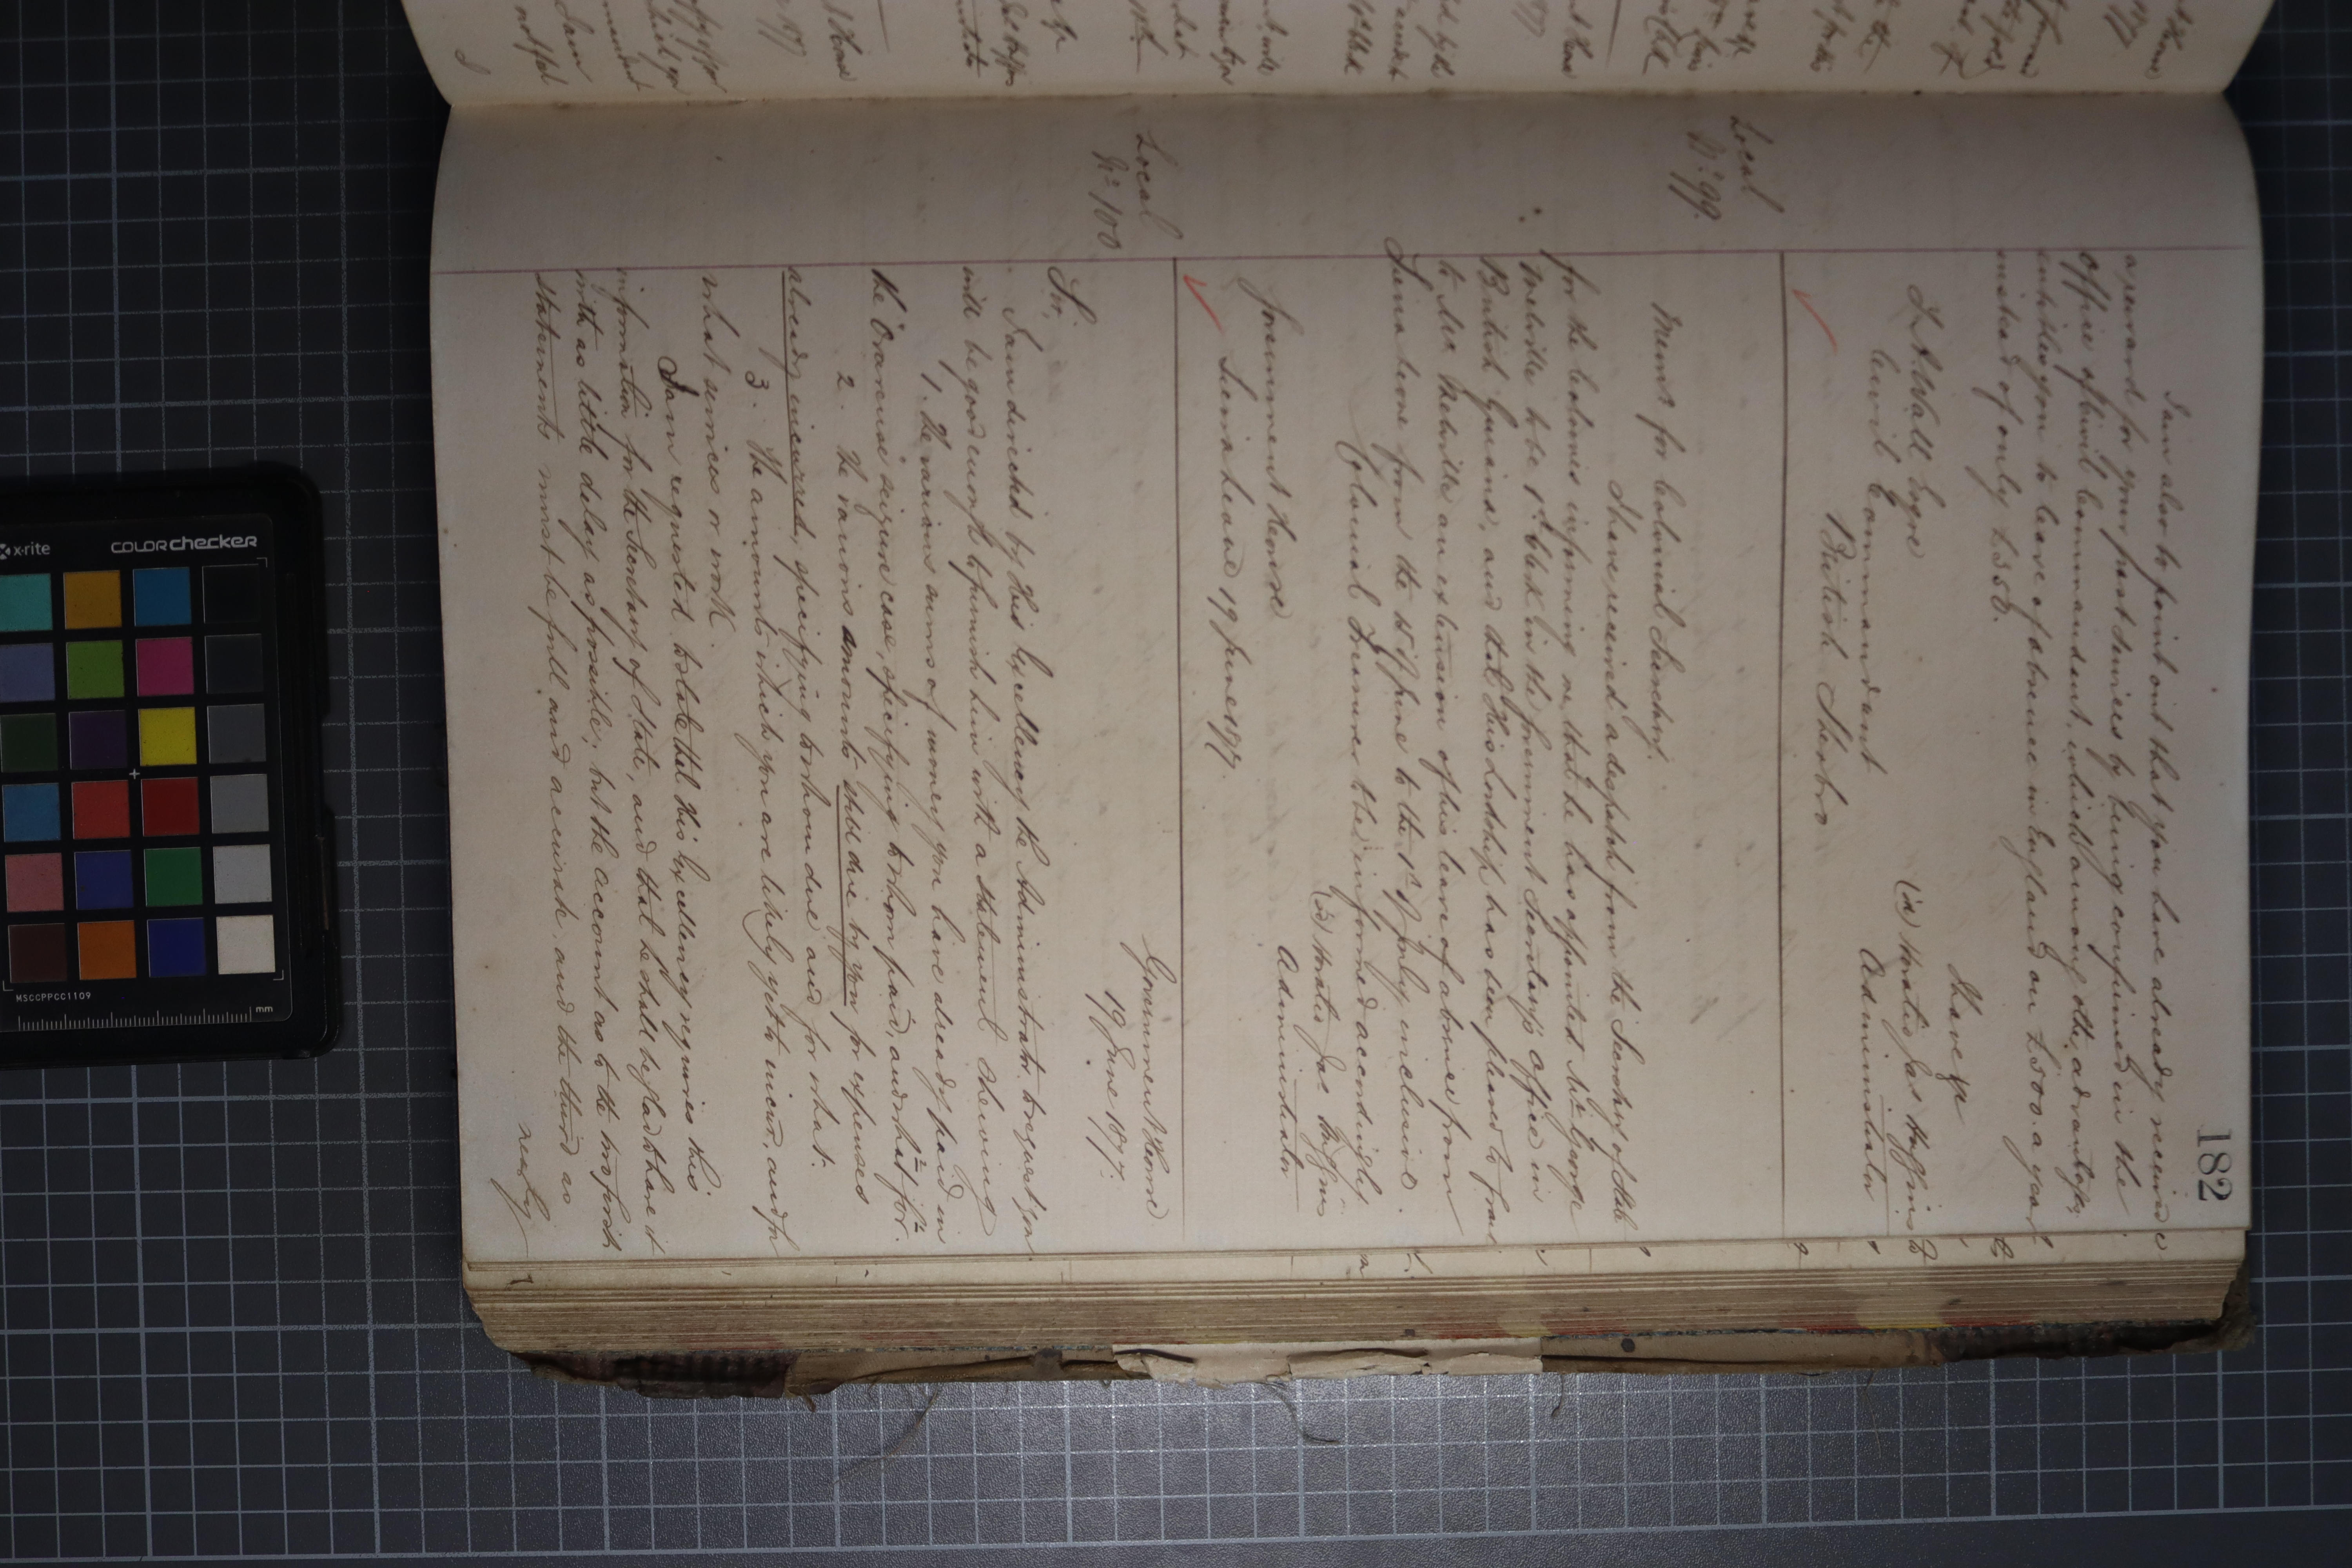 182
I am also to point out that you have already received
a reward for your past services by being confirmed in the
Office of Civil Commandant, which among other advantages
entitles you to leave of absence in England on £500 a year
instead of only £350.
I have &c
(sd) Horatio Jas Huggins
Administrator
L. A. Wall Esqre
Civil Commandant
British Sherbro
Local
No 99.
Minute for Colonial Secretary.
I have received a despatch from the Secretary of State
for the Colonies informing me that he has appointed Mr George
Melville to be 1st Clerk in the Government Secretary's Office in
British Guiana, and that His Lordship has been pleased to grant
to Mr Melville an extension of his leave of absence from
Sierra Leone from the 15th June to the 1st of July inclusive.
Colonial Treasurer to be informed accordingly.
(sd) Horatio Jas Huggins
Administrator
Government House
Sierra Leone 19 June 1877.
Local
No 100
Government House
19 June 1877.
Sir,
I am directed by His Excellency the Administrator to request you
will be good enough to furnish him with a statement shewing
1. The various sums of money you have already paid in
the Dracuise seizure case, specifying to whom paid, and what for.
2. The various amounts still due by you for expenses
already incurred, specifying to whom due and for what.
3. The amounts which you are likely yet to incur, and for
what services or work.
I am requested to state that His Excellency requires this
information for the Secretary of State, and that he shall be glad to have it
with as little delay as possible; but the account as to the two first
statements must be full and accurate and the third as
nearly